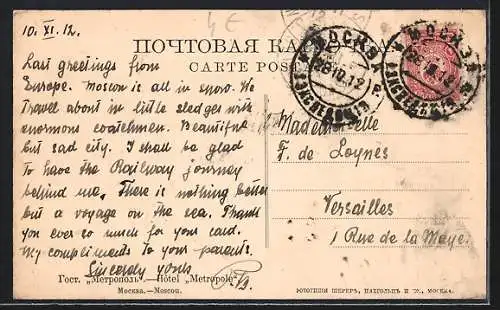 10. XI. 12.
ПОЧТОВАЯ КАРТОЧКА
CARTE POSTALE
МОСКВА
28 10. 12
МОСКВА
Last greetings from
Europe. Moscow is all in snow. We
travel about in little sledges with
enormous coatchmen. Beautiful
but sad city. I shall be glad
to have the Railway journey
behind me. There is nothing better
but a voyage on the sea. Thank
you ever so much for your card.
My compliments to your parents.
Sincerely yours
Mademoiselle
F. de Loynes
Versailles
1 Rue de la Maye.
Гост. „Метрополь".—Hôtel „Metropole"
Москва.—Moscou.
ФОТОТИПІЯ ШЕРЕРЪ, НАБГОЛЬЦЪ И К°, МОСКВА.